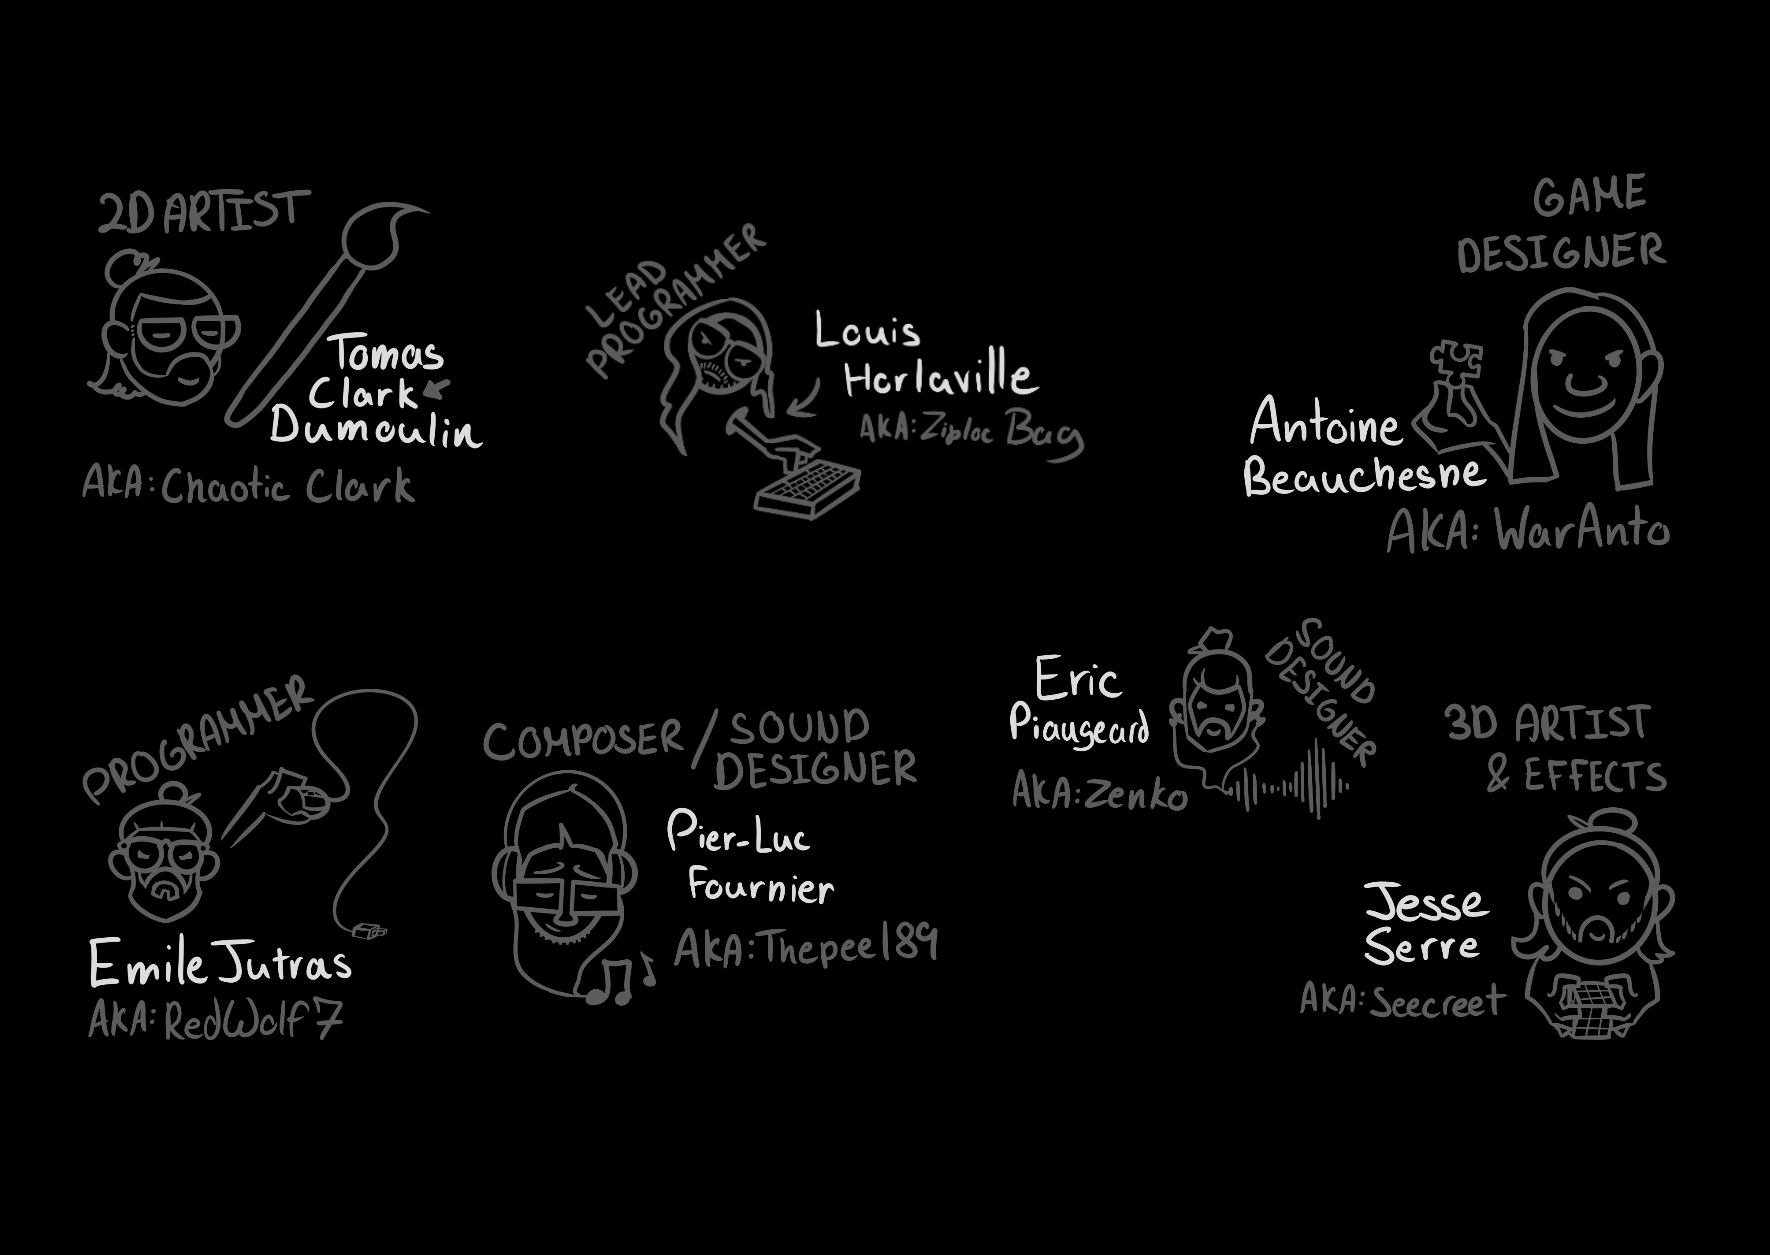 2D ARTIST
Tomas
Clark
Dumoulin
AKA: Chaotic Clark
LEAD
PROGRAMMER
Louis
Horlaville
AKA: Ziploc Bag
GAME
DESIGNER
Antoine
Beauchesne
AKA: WarAnto
PROGRAMMER
Emile Jutras
AKA: RedWolf7
COMPOSER / SOUND
DESIGNER
Pier-Luc
Fournier
AKA: Thepee189
Eric
Piaugeard
AKA: Zenko
SOUND
DESIGNER
3D ARTIST
& EFFECTS
Jesse
Serre
AKA: Seecreet